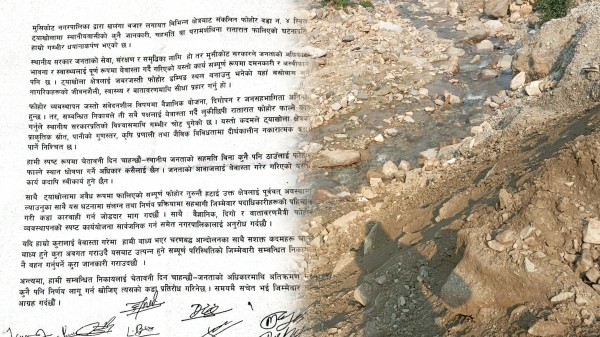 मुसिकोट नगरपालिका द्वारा खलंगा बजार लगायत विभिन्न क्षेत्रबाट संकलित फोहोर वडा नं. ४ स्थित
ट्याखोलामा स्थानीयवासीको कुनै जानकारी, सहमति वा परामर्शबिना रातारात फालिएको घटनाप्रति
हाम्रो गम्भीर ध्यानाकर्षण भएको छ ।
स्थानीय सरकार जनताको सेवा, संरक्षण र समृद्धिका लागि हो तर मुसीकोट सरकारले जनताको अधिकार,
भावना र स्वास्थ्यलाई पूर्ण रूपमा बेवास्ता गर्दै गरिएको यस्तो कार्य सम्पूर्ण रूपमा दमनकारी र
पनि छ । ट्याखोला क्षेत्रलाई जबरजस्ती फोहोर डम्पिङ स्थल बनाउनु भनेको यहाँ बसोबास
नागरिकहरूको जीवनशैली, स्वास्थ्य र वातावरणमाथि सीधा प्रहार गर्नु हो ।
फोहोर व्यवस्थापन जस्तो संवेदनशील विषयमा वैज्ञानिक योजना, दिगोपन र जनसहभागिता अनिवार्य
हुन्छ । तर, सम्बन्धित निकायले ती सबै पक्षलाई बेवास्ता गर्दै लुकीछिपी रातारात फोहोर फाल्ने कार्य
गर्नुले स्थानीय सरकारप्रतिको विश्वासमाथि गम्भीर चोट पुगेको छ । यस्तो कदमले ट्याखोलाको
प्राकृतिक स्रोत, पानीको गुणस्तर, कृषि प्रणाली तथा जैविक विविधतामा दीर्घकालीन नकारात्मक असर
पार्ने निश्चित छ ।
हामी स्पष्ट रूपमा चेतावनी दिन चाहन्छौं–स्थानीय जनताको सहमति बिना कुनै पनि ठाउँलाई फोहोर
फाल्ने स्थान घोषणा गर्ने अधिकार कसैलाई छैन । जनताको आवाजलाई बेवास्ता गरेर गरिएको यस्तो
कार्य कदापि स्वीकार्य हुने छैन ।
साथै ट्याखोलामा अवैध रूपमा फालिएको सम्पूर्ण फोहोर तुरुन्तै हटाई उक्त क्षेत्रलाई पूर्ववत् अवस्थामा
ल्याउनुका साथै यस घटनामा संलग्न तथा निर्णय प्रक्रियामा सहभागी जिम्मेवार पदाधिकारीहरूको पहिचान
गरी कडा कारवाही गर्न जोडदार माग गर्दछौं । साथै वैज्ञानिक, दिगो र वातावरणमैत्री फोहोर
व्यवस्थापनको स्पष्ट कार्ययोजना सार्वजनिक गर्न समेत नगरपालिकालाई अनुरोध गर्दछौं ।
यदि हाम्रो कुरालाई बेवास्ता गरेमा हामी बाध्य भएर चरणबद्ध आन्दोलनका साथै सशक्त कदमहरू चाल्न
बाध्य हुने कुरा अवगत गराउदै यसबाट उत्पन्न हुने सम्पूर्ण परिस्थितिको जिम्मेवारी सम्बन्धित निकायले
नै वहन गर्नुपर्ने कुरा जानकारी गराउदछौं ।
अन्त्यमा, हामी सम्बन्धित निकायलाई चेतावनी दिन चाहन्छौं–जनताको अधिकारमाथि अतिक्रमण
कुनै पनि निर्णय लागू गर्न खोजिए त्यसको कडा प्रतिरोध गरिनेछ । समयमै सचेत भई जिम्मेवार
आग्रह गर्दछौं ।